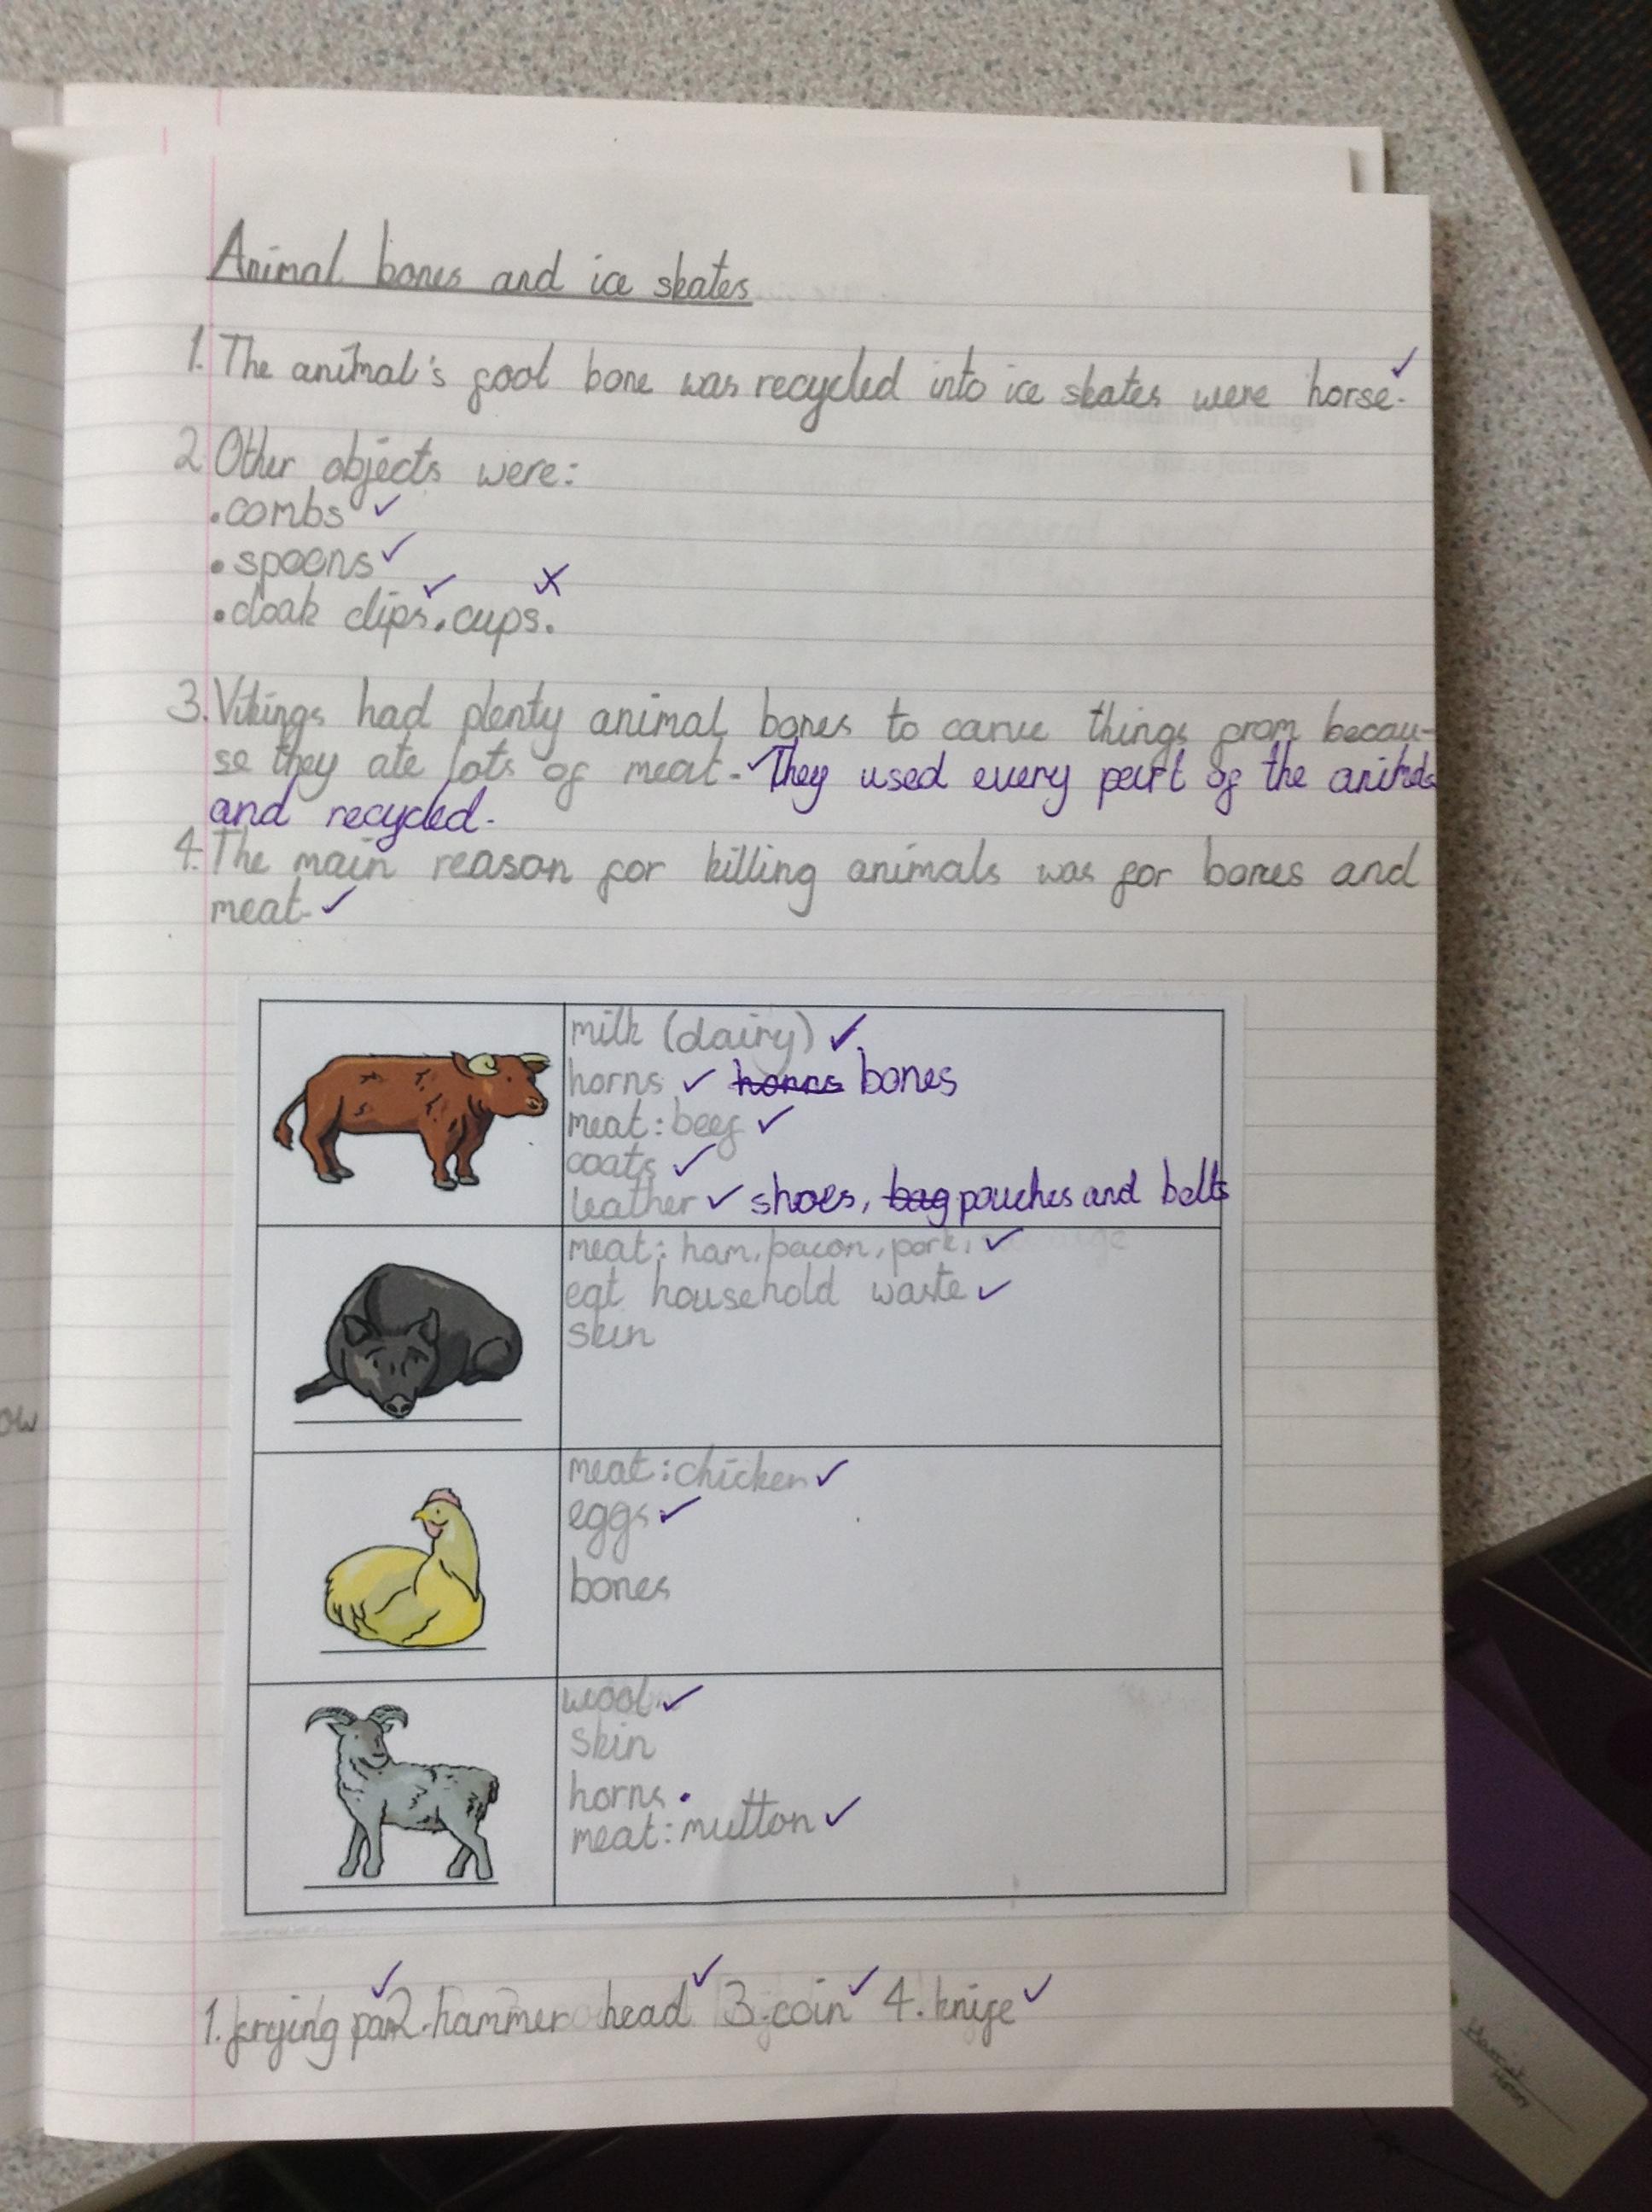 Animal bones and ice skates
1. The animal's foot bone was recycled into ice skates were horse.
2 Other objects were:
• combs
• spoons
• cloak clips. cups.
3. Vikings had plenty animal bones to carve things from becau-
se they ate lots of meat. They used every part of the animals
and recycled.
4. The main reason for killing animals was for bones and
meat.
milk (dairy)
horns bones
meat: beef
coats
leather shoes, bag pouches and belts
meat: ham, bacon, pork,
eat household waste
skin
meat: chicken
eggs
bones
wool
skin
horns.
meat: mutton
1. frying pan 2. hammer head 3. coin 4. knife
ow
History